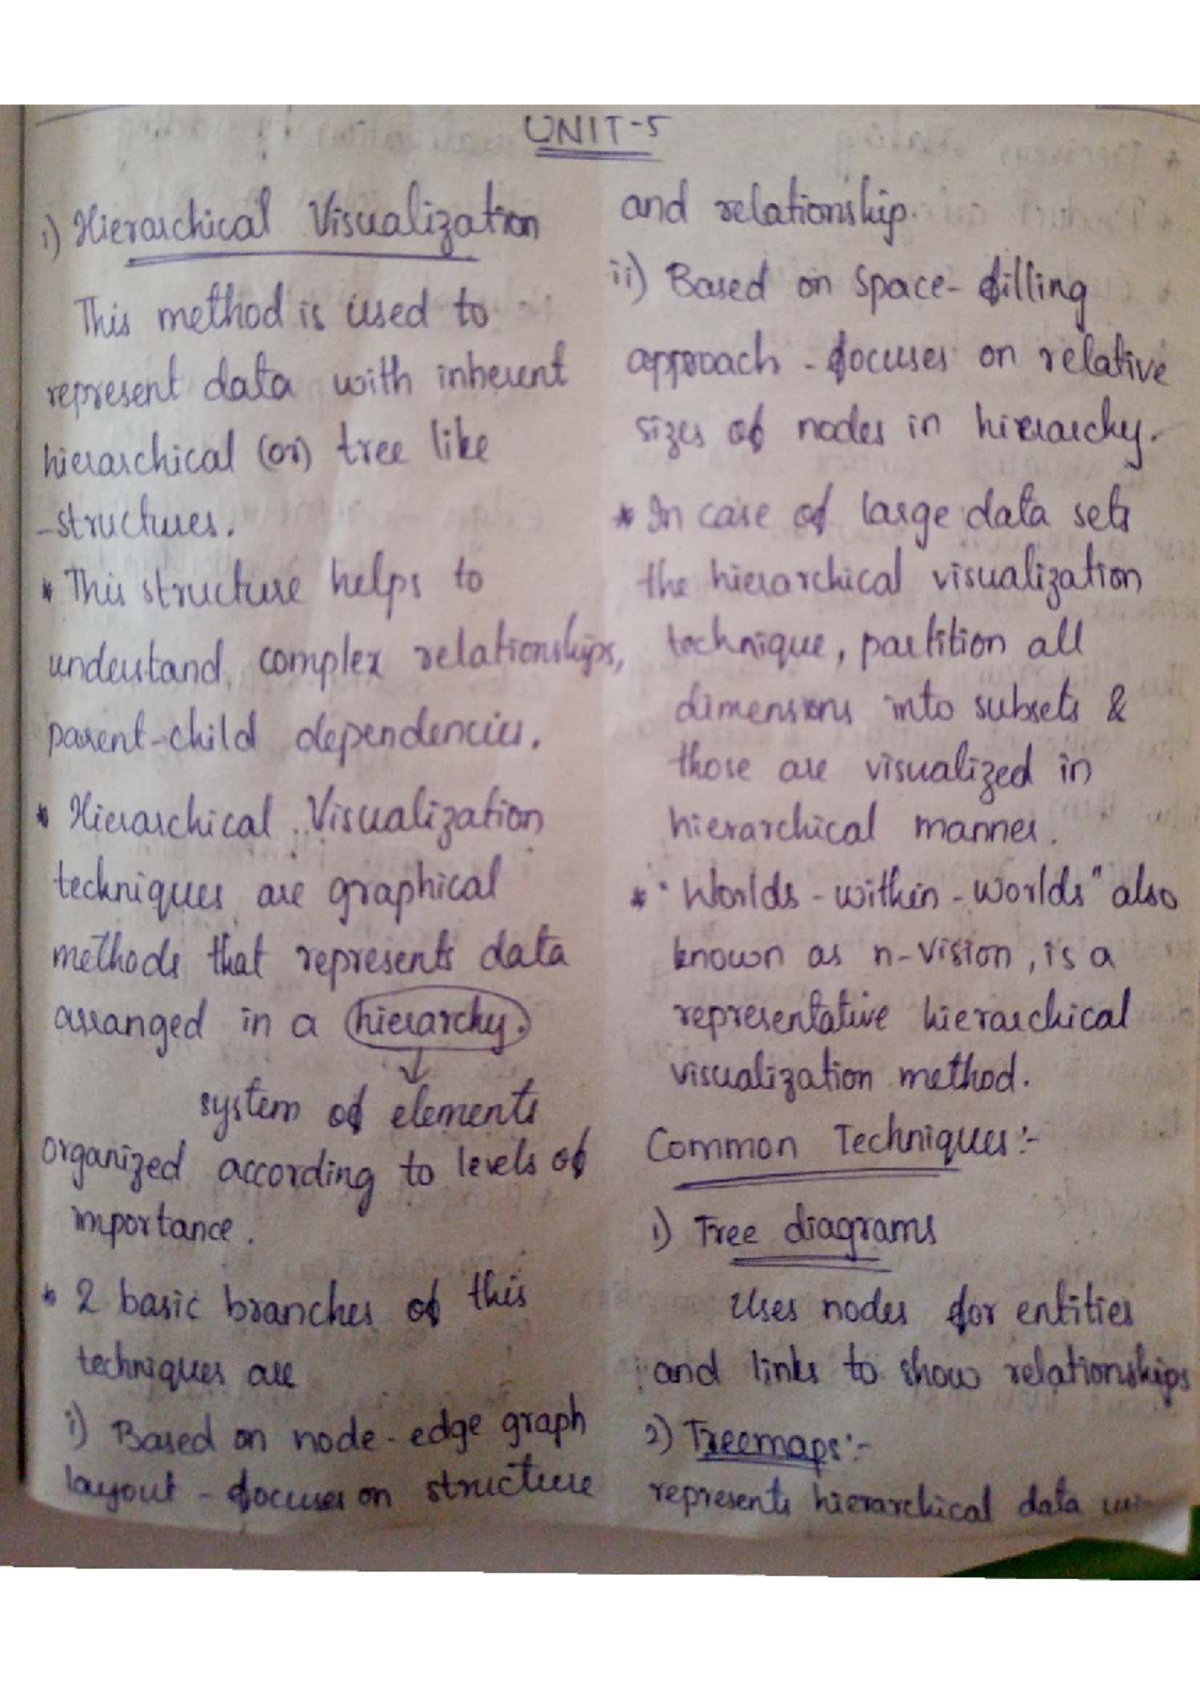 UNIT-5
i) Hierarchical Visualization
This method is used to
represent data with inherent
hierarchical (or) tree like
structures.
* This structure helps to
understand complex relationships,
parent-child dependencies.
* Hierarchical Visualization
techniques are graphical
methods that represents data
arranged in a hierarchy.
system of elements
organized according to levels of
importance.
* 2 basic branches of this
techniques are
i) Based on node-edge graph
layout - focuses on structure
and relationship.
ii) Based on space-filling
approach - focuses on relative
sizes of nodes in hierarchy.
* In case of large data sets
the hierarchical visualization
technique, partition all
dimensions into subsets &
those are visualized in
hierarchical manner.
* "Worlds-within-Worlds" also
known as n-Vision, is a
representative hierarchical
visualization method.
Common Techniques:-
1) Tree diagrams
Uses nodes for entities
and links to show relationships
2) Treemaps:-
represents hierarchical data